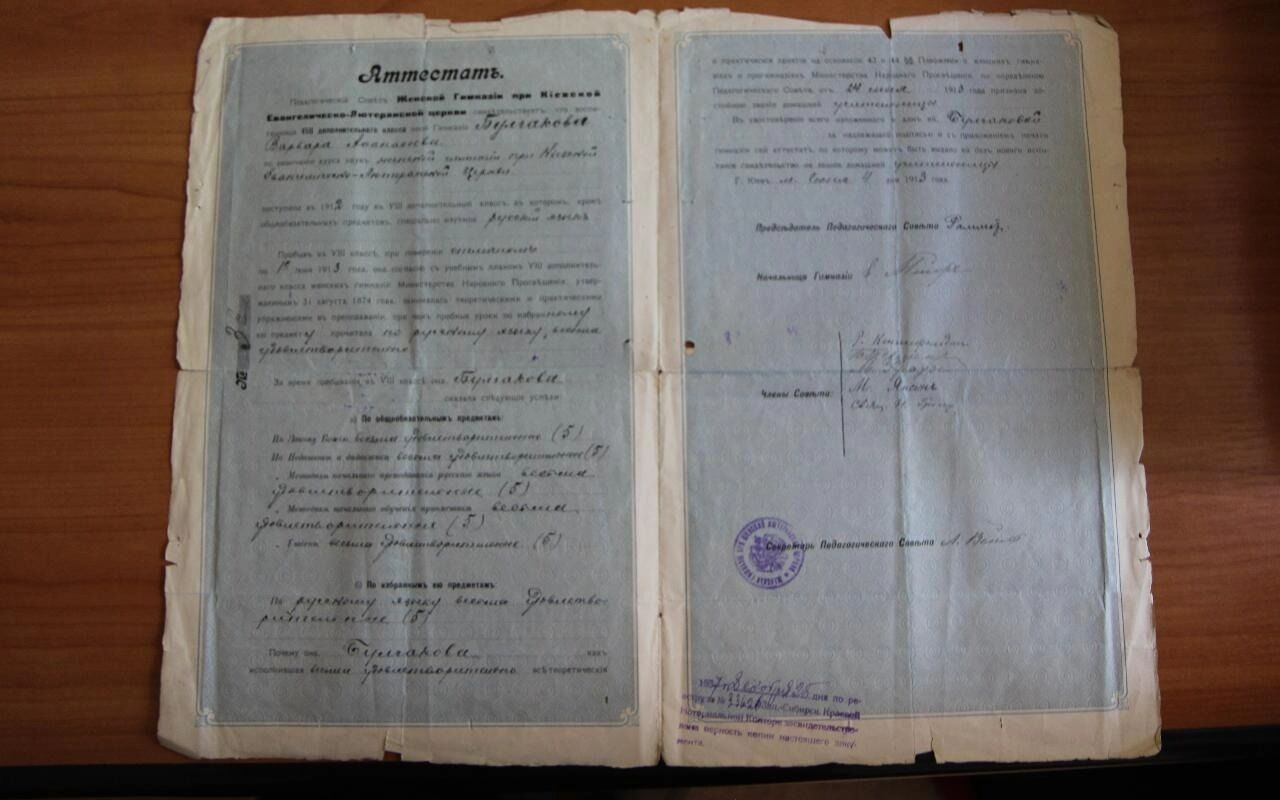 Аттестатъ.
Педагогическій Совѣтъ Женской Гимназіи при Кіевской
Евангелическо-Лютеранской церкви свидѣтельствуетъ, что воспи-
танница VIII дополнительнаго класса сей Гимназіи Булгакова
Варвара
по окончаніи курса наукъ женской гимназіи при Кіевской
Евангелическо-Лютеранской Церкви
поступила въ 1912 году въ VIII дополнительный классъ, въ которомъ, кромѣ
общеобязательныхъ предметовъ, спеціально изучала русскій языкъ
Пробывъ въ VIII классѣ, при поведеніи отличномъ
по 1е іюня 1913 года, она, согласно съ учебнымъ планомъ VIII дополнитель-
наго класса женскихъ гимназій Министерства Народнаго Просвѣщенія, утвер-
жденнымъ 31 августа 1874 года, занималась теоретическими и практическими
упражненіями въ преподаваніи, при чемъ пробные уроки по избранному
ею предмету прочитала по русскому языку, весьма
удовлетворительно
№
За время пребыванія въ VIII классѣ она Булгакова
оказала слѣдующіе успѣхи:
а) По общеобязательнымъ предметамъ:
Въ Законѣ Божіи весьма удовлетворительные (5)
По Педагогикѣ и дидактикѣ весьма удовлетворительные (5)
„ Методикѣ начальнаго преподаванія русскаго языка весьма
удовлетворительные (5)
„ Методикѣ начальнаго обученія ариѳметикѣ весьма
удовлетворительные (5)
„ весьма удовлетворительные (5)
б) По избраннымъ ею предметамъ:
По русскому языку весьма удовлетво-
рительные (5)
Почему она Булгакова какъ
исполнившая весьма удовлетворительно всѣ теоретическія
1
1
и практическія занятія на основаніи 43 и 44 §§ Положенія о женскихъ гимна-
зіяхъ и прогимназіяхъ Министерства Народнаго Просвѣщенія, по опредѣленію
Педагогическаго Совѣта, отъ 24 1913 года признана до-
стойною званія домашней учительницы
Въ удостовѣреніе всего изложеннаго и данъ ей, Булгаковой
за надлежащею подписью и съ приложеніемъ печати
гимназіи сей аттестатъ, по которому можетъ быть выдано ей безъ новаго испы-
танія свидѣтельство на званіе домашней учительницы
Г. Кіевъ 4 дня 1913 года.
Предсѣдатель Педагогическаго Совѣта
Начальница Гимназіи
Члены Совѣта:
М. Янсонъ
Секретарь Педагогическаго Совѣта
1937 декабря 25 дня по ре-
естру за № Зап.-Сибирск. Краевой
Нотариальной Конторе засвидетельство-
вана верность копии настоящего доку-
мента.